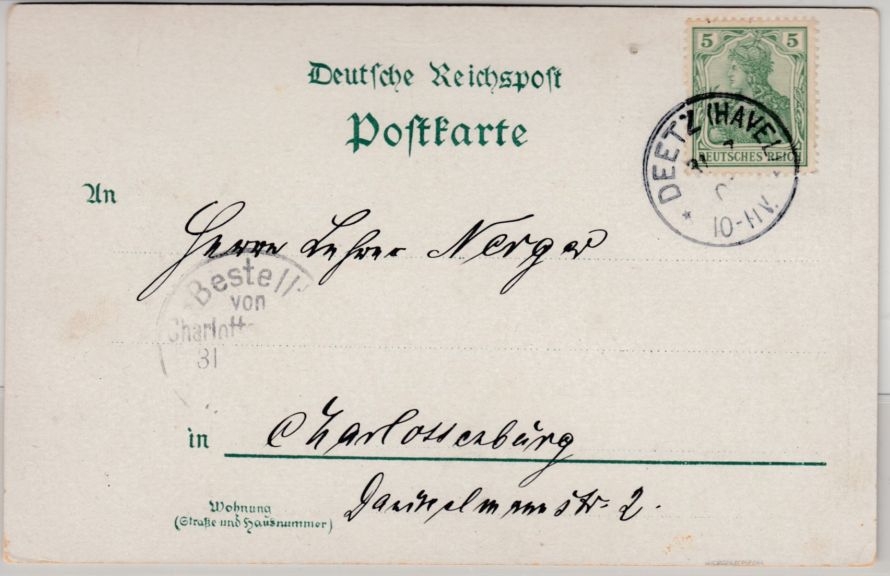 Deutsche Reichspost
Postkarte
5 5
DEUTSCHES REICH
DEETZ (HAVEL)
31 7
10-11V.
An
Herrn Lehrer Nerger
Bestellt
von
Charlotte
31
in Charlottenburg
Danckelmannstr. 2.
Wohnung
(Straße und Hausnummer)